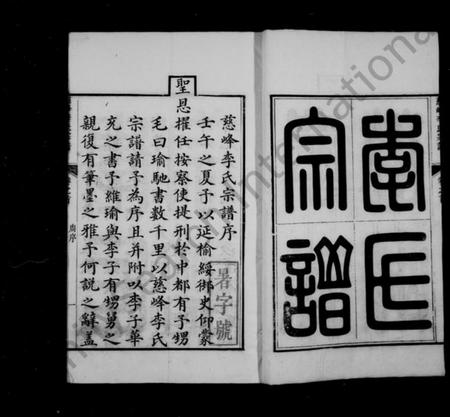 李氏
宗譜
慈峰李氏宗譜序
壬午之夏予以延榆綏御史仰蒙
聖恩擢任按察使提刑於中都有予甥
毛曰瑜馳書數千里以慈峰李氏
宗譜請予為序且并附以李子華
充之書予維瑜與李子有甥舅之
親復有筆墨之雅予何說之辭蓋
暑字號